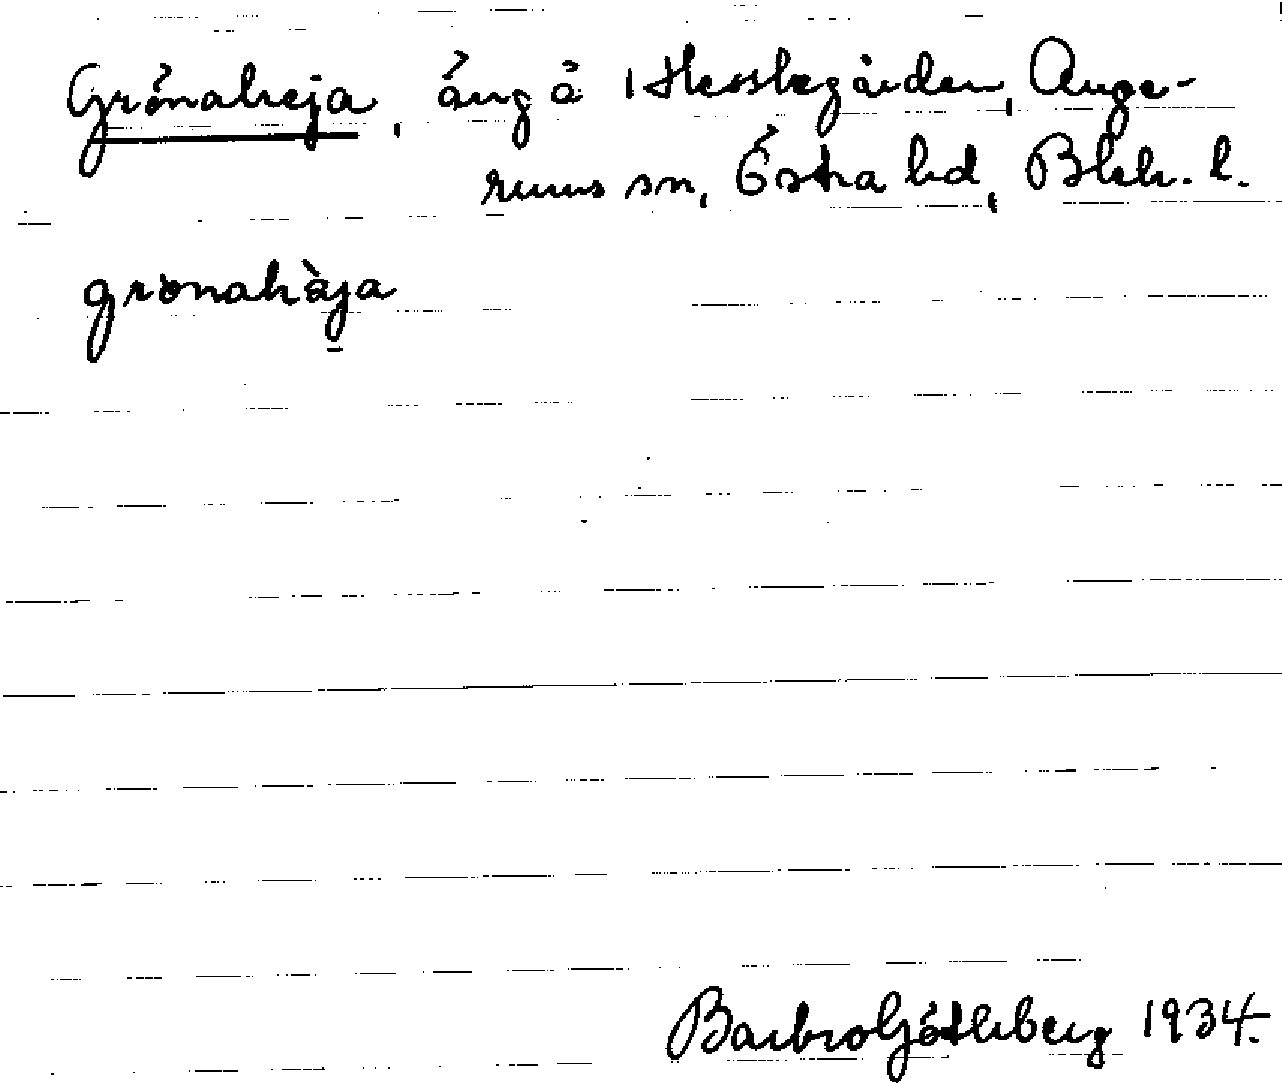 Grönaheja, äng å 1 Hesslegården, Ange-
rums sn, Östra hd, Blek. l.
grònahàja
Barbro Götheberg 1934.